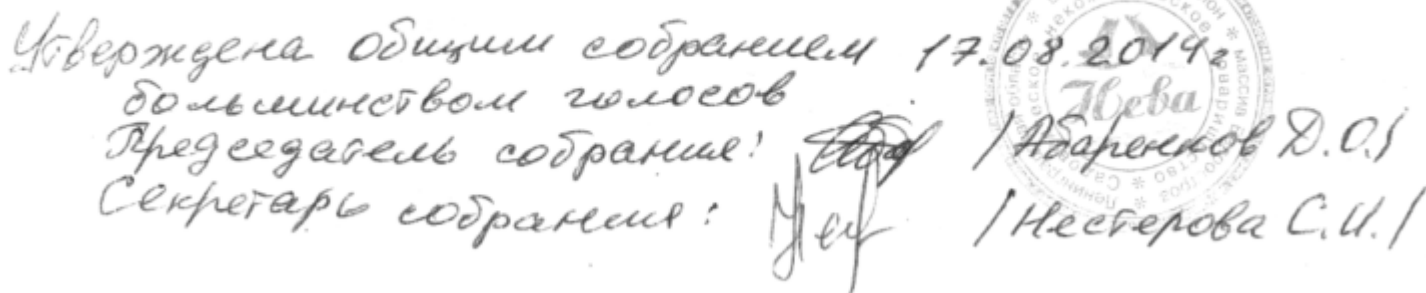 Утверждена общим собранием 17.08.2014г
большинством голосов
Председатель собрания: /Абаренков Д.О./
Секретарь собрания: /Нестерова С.И./
Нева